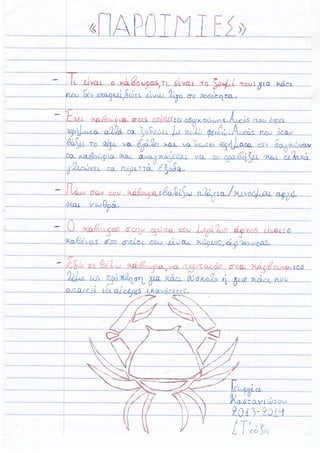 «ΠΑΡΟΙΜΙΕΣ»
- Τι είναι ο κάβουρας, τι είναι το ζουμί του: για κάτι
που δεν επαρκεί, διότι είναι λίγο σε ποσότητα.
- Έχει καβούρια στις τσέπες: ο τσιγκούνης. Αυτός που έχει
χρήματα αλλά τα ξοδεύει με πολύ φειδώ. Αυτός που όταν
βάζει το χέρι να βγάλει και να δώσει χρήματα τον δαγκώνουν
τα καβούρια και αναγκάζεται να το τραβήξει και τελικά
γλιτώνει τα περιττά έξοδα.
- Πάω σαν τον κάβουρα: βαδίζω πλάγια/κινούμαι αργά
και νωθρά.
- Ο κάβουρας στην τρύπα του μεγάλος άρχος είναι: ο
καθένας στο σπίτι του είναι κύριος, άρχοντας
- Εδώ σε θέλω κάβουρα, να περπατάς στα κάρβουνα: το
λέμε ως πρόκληση για κάτι δύσκολο ή για κάτι που
απαιτεί ιδιαίτερες ικανότητες.
Γεωργία
Καστανιώτου
2013-2014
ΣΤ΄τάξη